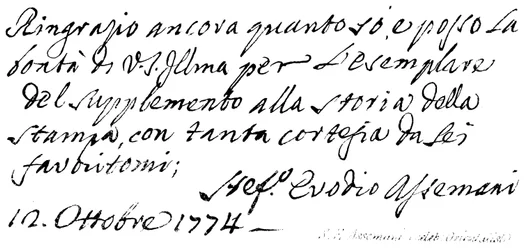 Ringrazio ancora quanto so, e posso la
bontà di V.S. Illma per L'esemplare
del supplemento alla storia della
stampa, con tanta cortesia da Lei
favoritomi;
Stef.º Evodio Assemani
12. Ottobre 1774